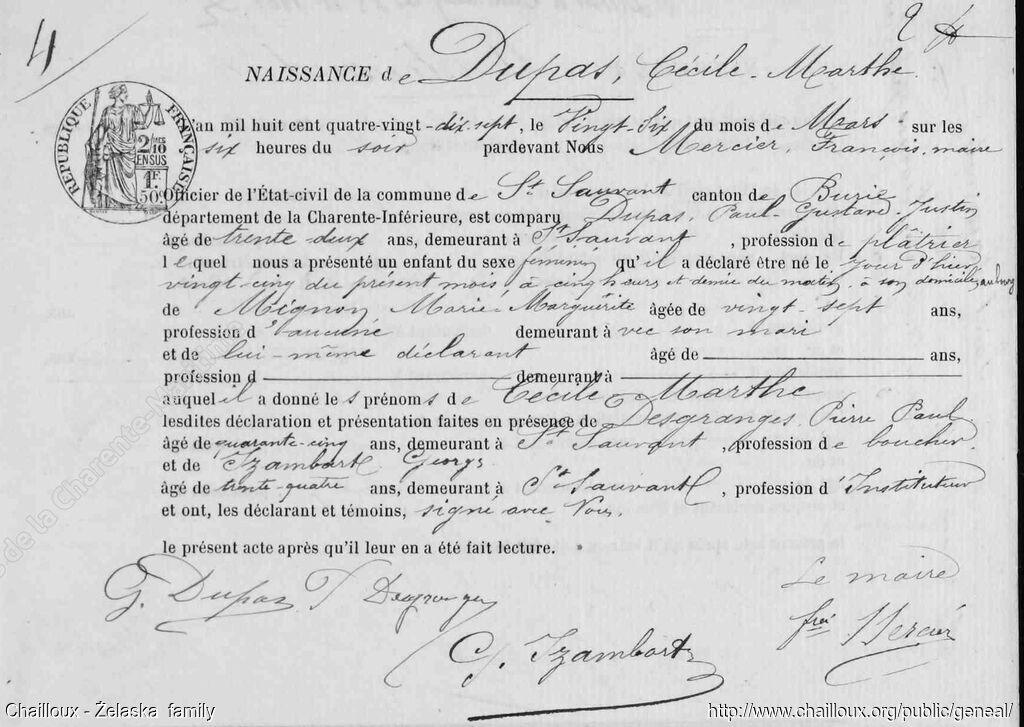 4
2
NAISSANCE de Dupas, Cécile-Marthe.
RÉPUBLIQUE FRANÇAISE
2/10 EN SUS
1F 50
L'an mil huit cent quatre-vingt-dix-sept, le Vingt-Six du mois de Mars sur les
six heures du soir pardevant Nous Mercier, François, maire
Officier de l'État-civil de la commune de St Sauvant canton de Burie
département de la Charente-Inférieure, est comparu Dupas, Paul-Gustave-Justin
âgé de trente-deux ans, demeurant à St Sauvant, profession de plâtrier
lequel nous a présenté un enfant du sexe féminin qu'il a déclaré être né le jour d'hier
vingt-cinq du présent mois à cinq heurs et demie du matin, à son domicile, au bourg
de Mignon, Marie Marguérite âgée de vingt-sept ans,
profession d'aucune demeurant avec son mari
et de lui-même déclarant âgé de ans,
profession d demeurant à
auquel il a donné les prénoms de Cécile Marthe
lesdites déclaration et présentation faites en présence de Desgranges, Pierre Paul
âgé de quarante-cinq ans, demeurant à St Sauvant, profession de boucher
et de Izambart, Georges
âgé de trente-quatre ans, demeurant à St Sauvant, profession d'Instituteur
et ont, les déclarant et témoins, signé avec Nous,
le présent acte après qu'il leur en a été fait lecture.
G. Dupas P Desgranges
Le maire
G. Izambart
foi Mercier
de la Charente-Maritime
Chailloux - Żelaska family
http://www.chailloux.org/public/geneal/